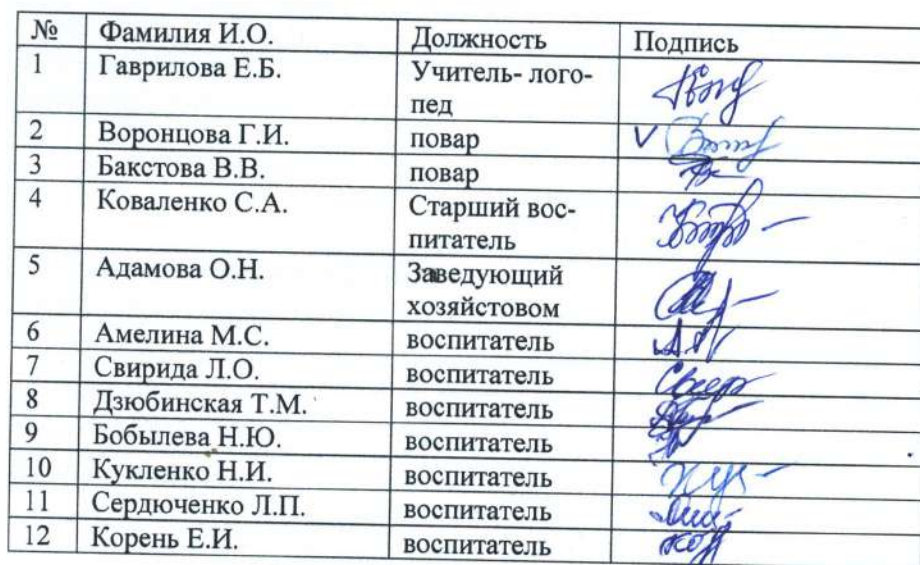 № Фамилия И.О. Должность Подпись
1 Гаврилова Е.Б. Учитель- лого-
пед
2 Воронцова Г.И. повар
3 Бакстова В.В. повар
4 Коваленко С.А. Старший вос-
питатель
5 Адамова О.Н. Заведующий
хозяйстовом
6 Амелина М.С. воспитатель
7 Свирида Л.О. воспитатель
8 Дзюбинская Т.М. воспитатель
9 Бобылева Н.Ю. воспитатель
10 Кукленко Н.И. воспитатель
11 Сердюченко Л.П. воспитатель
12 Корень Е.И. воспитатель